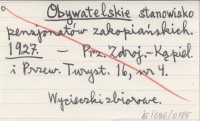 Obywatelskie stanowisko
pensjonatów zakopiańskich.
1927. — Prz. Zdroj.-Kąpiel
i Przew. Turyst. 16, nr 4.
Wycieczki zbiorowe.